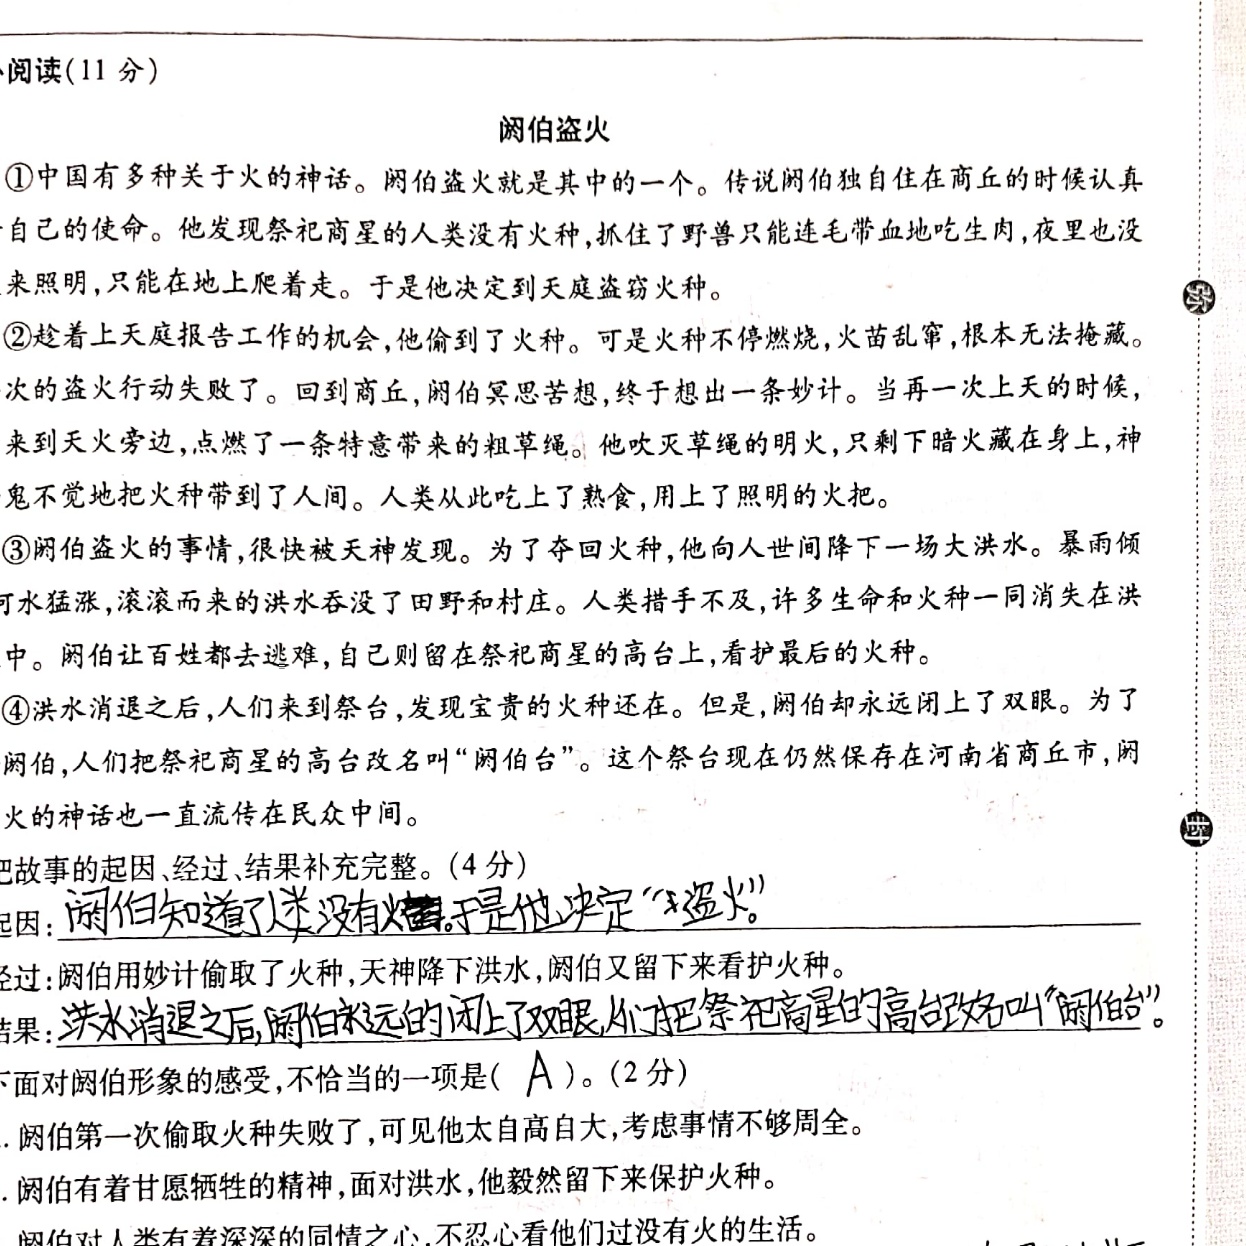 阅读(11 分)
阏伯盗火
①中国有多种关于火的神话。阏伯盗火就是其中的一个。传说阏伯独自住在商丘的时候认真
自己的使命。他发现祭祀商星的人类没有火种,抓住了野兽只能连毛带血地吃生肉,夜里也没
来照明,只能在地上爬着走。于是他决定到天庭盗窃火种。
②趁着上天庭报告工作的机会,他偷到了火种。可是火种不停燃烧,火苗乱窜,根本无法掩藏。
次的盗火行动失败了。回到商丘,阏伯冥思苦想,终于想出一条妙计。当再一次上天的时候,
来到天火旁边,点燃了一条特意带来的粗草绳。他吹灭草绳的明火,只剩下暗火藏在身上,神
鬼不觉地把火种带到了人间。人类从此吃上了熟食,用上了照明的火把。
③阏伯盗火的事情,很快被天神发现。为了夺回火种,他向人世间降下一场大洪水。暴雨倾
河水猛涨,滚滚而来的洪水吞没了田野和村庄。人类措手不及,许多生命和火种一同消失在洪
中。阏伯让百姓都去逃难,自己则留在祭祀商星的高台上,看护最后的火种。
④洪水消退之后,人们来到祭台,发现宝贵的火种还在。但是,阏伯却永远闭上了双眼。为了
阏伯,人们把祭祀商星的高台改名叫“阏伯台”。这个祭台现在仍然保存在河南省商丘市,阏
火的神话也一直流传在民众中间。
把故事的起因、经过、结果补充完整。(4 分)
起因:阏伯知道了人类没有火。于是他决定“盗火”。
经过:阏伯用妙计偷取了火种,天神降下洪水,阏伯又留下来看护火种。
结果:洪水消退之后,阏伯永远的闭上了双眼,人们把祭祀商星的高台改名叫“阏伯台”。
下面对阏伯形象的感受,不恰当的一项是( A )。(2 分)
. 阏伯第一次偷取火种失败了,可见他太自高自大,考虑事情不够周全。
. 阏伯有着甘愿牺牲的精神,面对洪水,他毅然留下来保护火种。
阏伯对人类有着深深的同情之心,不忍心看他们过没有火的生活。